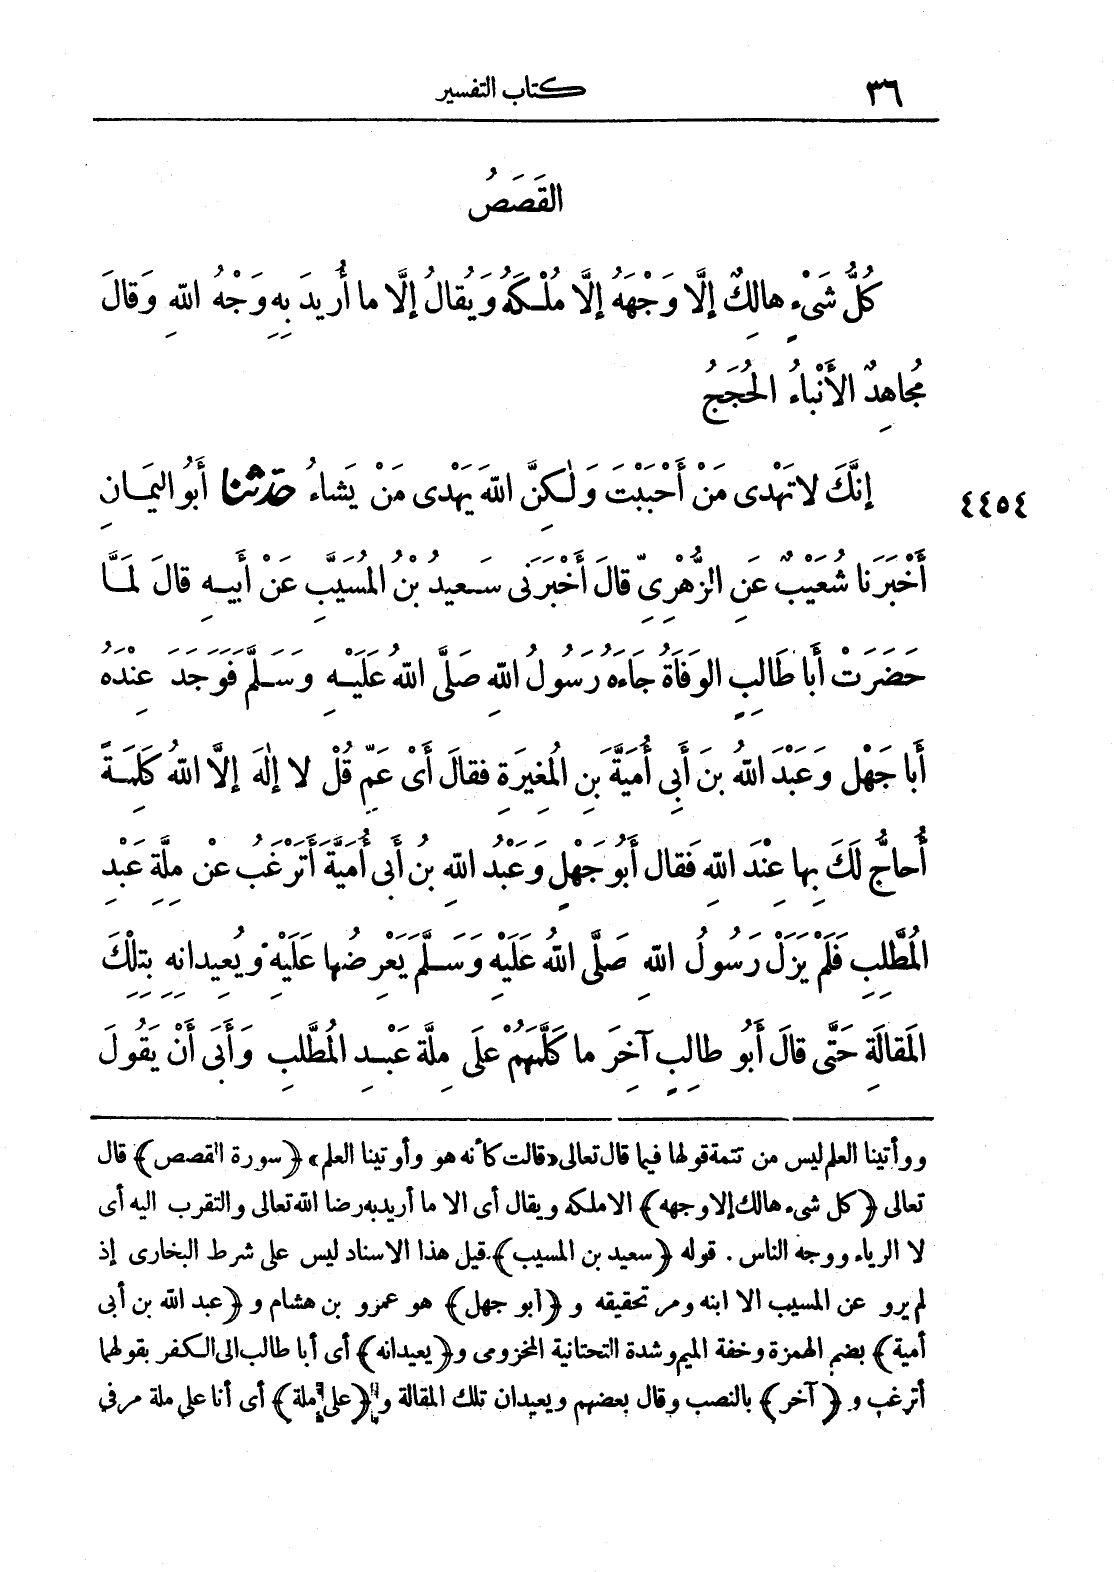 ٣٦ كتاب التفسير
القَصَصُ
كُلُّ شَيْءٍ هالِكٌ إلَّا وَجْهَهُ إلَّا مُلْكَهُ وَيُقالُ إلَّا ما أُرِيدَ بِهِ وَجْهُ اللهِ وَقالَ
مُجاهِدٌ الأَنْباءُ الحُجَجُ
٤٤٥٤ إنَّكَ لا تَهْدِى مَنْ أَحْبَبْتَ وَلٰكِنَّ اللهَ يَهْدِى مَنْ يَشاءُ حَدَّثَنا أَبُو اليَمانِ
أَخْبَرَنا شُعَيْبٌ عَنِ الزُّهْرِىِّ قالَ أَخْبَرَنِى سَعِيدُ بْنُ المُسَيَّبِ عَنْ أَبِيهِ قالَ لَمَّا
حَضَرَتْ أَبا طَالِبٍ الوَفَاةُ جَاءَهُ رَسُولُ اللهِ صَلَّى اللهُ عَلَيْهِ وَسَلَّمَ فَوَجَدَ عِنْدَهُ
أَبا جَهْلٍ وَعَبْدَ اللهِ بنَ أَبِي أُمَيَّةَ بنِ المُغِيرَةِ فقالَ أَىْ عَمِّ قُلْ لا إلٰهَ إلَّا اللهُ كَلِمَةً
أُحاجُّ لَكَ بِها عِنْدَ اللهِ فَقال أَبُو جَهْلٍ وَعَبْدُ اللهِ بنُ أَبِى أُمَيَّةَ أَتَرْغَبُ عَنْ مِلَّةِ عَبْدِ
المُطَّلِبِ فَلَمْ يَزَلْ رَسُولُ اللهِ صَلَّى اللهُ عَلَيْهِ وَسَلَّمَ يَعْرِضُها عَلَيْهِ وَيُعِيدانِهِ بِتِلْكَ
المَقالَةِ حَتَّى قالَ أَبُو طالِبٍ آخِرَ ما كَلَّمَهُمْ عَلَى مِلَّةِ عَبْدِ المُطَّلِبِ وَأَبَى أَنْ يَقُولَ
ووأتينا العلم ليس من تتمة قولها فيما قال تعالى «قالت كأنه هو وأوتينا العلم» ﴿سورة القصص﴾ قال
تعالى ﴿كل شىء هالك إلا وجهه﴾ الا ملكه ويقال أى الا ما أريد به رضا الله تعالى والتقرب اليه أى
لا الرياء ووجه الناس. قوله ﴿سعيد بن المسيب﴾ قيل هذا الاسناد ليس على شرط البخارى إذ
لم يرو عن المسيب الا ابنه ومر تحقيقه و ﴿أبو جهل﴾ هو عمرو بن هشام و ﴿عبد الله بن أبى
أمية﴾ بضم الهمزة وخفة الميم وشدة التحتانية المخزومى و ﴿يعيدانه﴾ أى أبا طالب الى الكفر بقولهما
أترغب و ﴿آخر﴾ بالنصب وقال بعضهم ويعيدان تلك المقالة و ﴿على ملة﴾ أى أنا على ملة مر فى